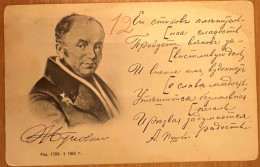 12
Его стиховъ плѣнительная
сладость
Пройдетъ вѣковъ завистливую даль
И внемля имъ вздохнетъ
о славѣ младость,
Утѣшится безмолвная
печаль
И рѣзвая задумается
радость.
А. Пушкинъ
Жуковскій
Род. 1783 † 1852 г.